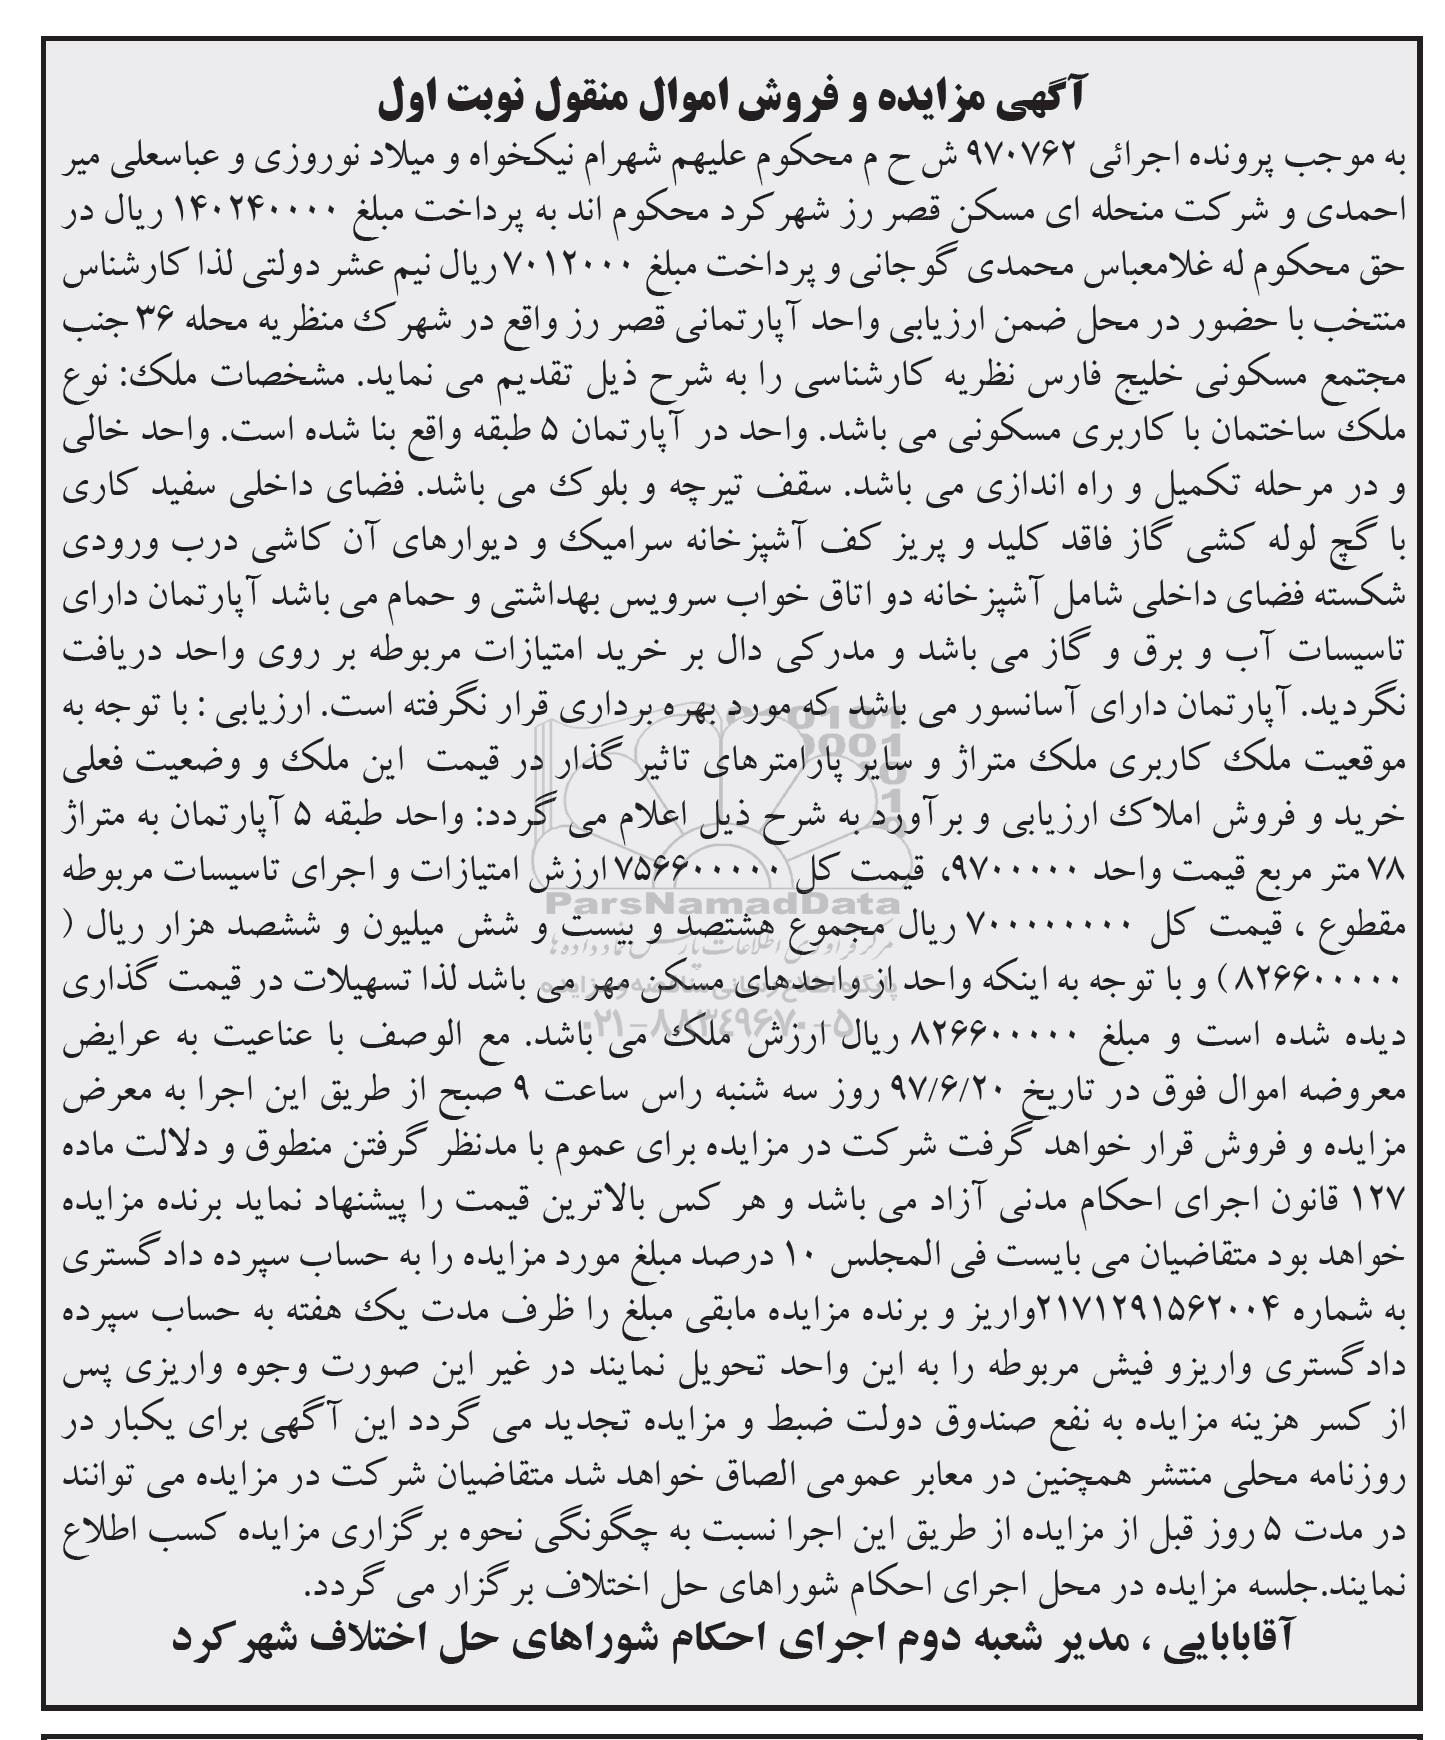 آگهی مزایده و فروش اموال منقول نوبت اول
به موجب پرونده اجرائی ۹۷۰۷۶۲ ش ح م محکوم علیهم شهرام نیکخواه و میلاد نوروزی و عباسعلی میر
احمدی و شرکت منحله ای مسکن قصر رز شهرکرد محکوم اند به پرداخت مبلغ ۱۴۰۲۴۰۰۰۰ ریال در
حق محکوم له غلامعباس محمدی گوجانی و پرداخت مبلغ ۷۰۱۲۰۰۰ ریال نیم عشر دولتی لذا کارشناس
منتخب با حضور در محل ضمن ارزیابی واحد آپارتمانی قصر رز واقع در شهرک منظریه محله ۳۶ جنب
مجتمع مسکونی خلیج فارس نظریه کارشناسی را به شرح ذیل تقدیم می نماید. مشخصات ملک: نوع
ملک ساختمان با کاربری مسکونی می باشد. واحد در آپارتمان ۵ طبقه واقع بنا شده است. واحد خالی
و در مرحله تکمیل و راه اندازی می باشد. سقف تیرچه و بلوک می باشد. فضای داخلی سفید کاری
با گچ لوله کشی گاز فاقد کلید و پریز کف آشپزخانه سرامیک و دیوارهای آن کاشی درب ورودی
شکسته فضای داخلی شامل آشپزخانه دو اتاق خواب سرویس بهداشتی و حمام می باشد آپارتمان دارای
تاسیسات آب و برق و گاز می باشد و مدرکی دال بر خرید امتیازات مربوطه بر روی واحد دریافت
نگردید. آپارتمان دارای آسانسور می باشد که مورد بهره برداری قرار نگرفته است. ارزیابی : با توجه به
موقعیت ملک کاربری ملک متراژ و سایر پارامترهای تاثیر گذار در قیمت این ملک و وضعیت فعلی
خرید و فروش املاک ارزیابی و برآورد به شرح ذیل اعلام می گردد: واحد طبقه ۵ آپارتمان به متراژ
۷۸ متر مربع قیمت واحد ۹۷۰۰۰۰۰، قیمت کل ۷۵۶۶۰۰۰۰۰ ارزش امتیازات و اجرای تاسیسات مربوطه
مقطوع ، قیمت کل ۷۰۰۰۰۰۰۰۰ ریال مجموع هشتصد و بیست و شش میلیون و ششصد هزار ریال (
۸۲۶۶۰۰۰۰۰ ) و با توجه به اینکه واحد از واحدهای مسکن مهر می باشد لذا تسهیلات در قیمت گذاری
دیده شده است و مبلغ ۸۲۶۶۰۰۰۰۰ ریال ارزش ملک می باشد. مع الوصف با عناعیت به عرایض
معروضه اموال فوق در تاریخ ۹۷/۶/۲۰ روز سه شنبه راس ساعت ۹ صبح از طریق این اجرا به معرض
مزایده و فروش قرار خواهد گرفت شرکت در مزایده برای عموم با مدنظر گرفتن منطوق و دلالت ماده
۱۲۷ قانون اجرای احکام مدنی آزاد می باشد و هر کس بالاترین قیمت را پیشنهاد نماید برنده مزایده
خواهد بود متقاضیان می بایست فی المجلس ۱۰ درصد مبلغ مورد مزایده را به حساب سپرده دادگستری
به شماره ۲۱۷۱۲۹۱۵۶۲۰۰۴واریز و برنده مزایده مابقی مبلغ را ظرف مدت یک هفته به حساب سپرده
دادگستری واریزو فیش مربوطه را به این واحد تحویل نمایند در غیر این صورت وجوه واریزی پس
از کسر هزینه مزایده به نفع صندوق دولت ضبط و مزایده تجدید می گردد این آگهی برای یکبار در
روزنامه محلی منتشر همچنین در معابر عمومی الصاق خواهد شد متقاضیان شرکت در مزایده می توانند
در مدت ۵ روز قبل از مزایده از طریق این اجرا نسبت به چگونگی نحوه برگزاری مزایده کسب اطلاع
نمایند.جلسه مزایده در محل اجرای احکام شوراهای حل اختلاف برگزار می گردد.
آقابابایی ، مدیر شعبه دوم اجرای احکام شوراهای حل اختلاف شهرکرد
ParsNamadData
پایگاه اطلاع رسانی مناقصه و مزایده
۰۲۱-۸۸۳۴۹۶۷۰-۵